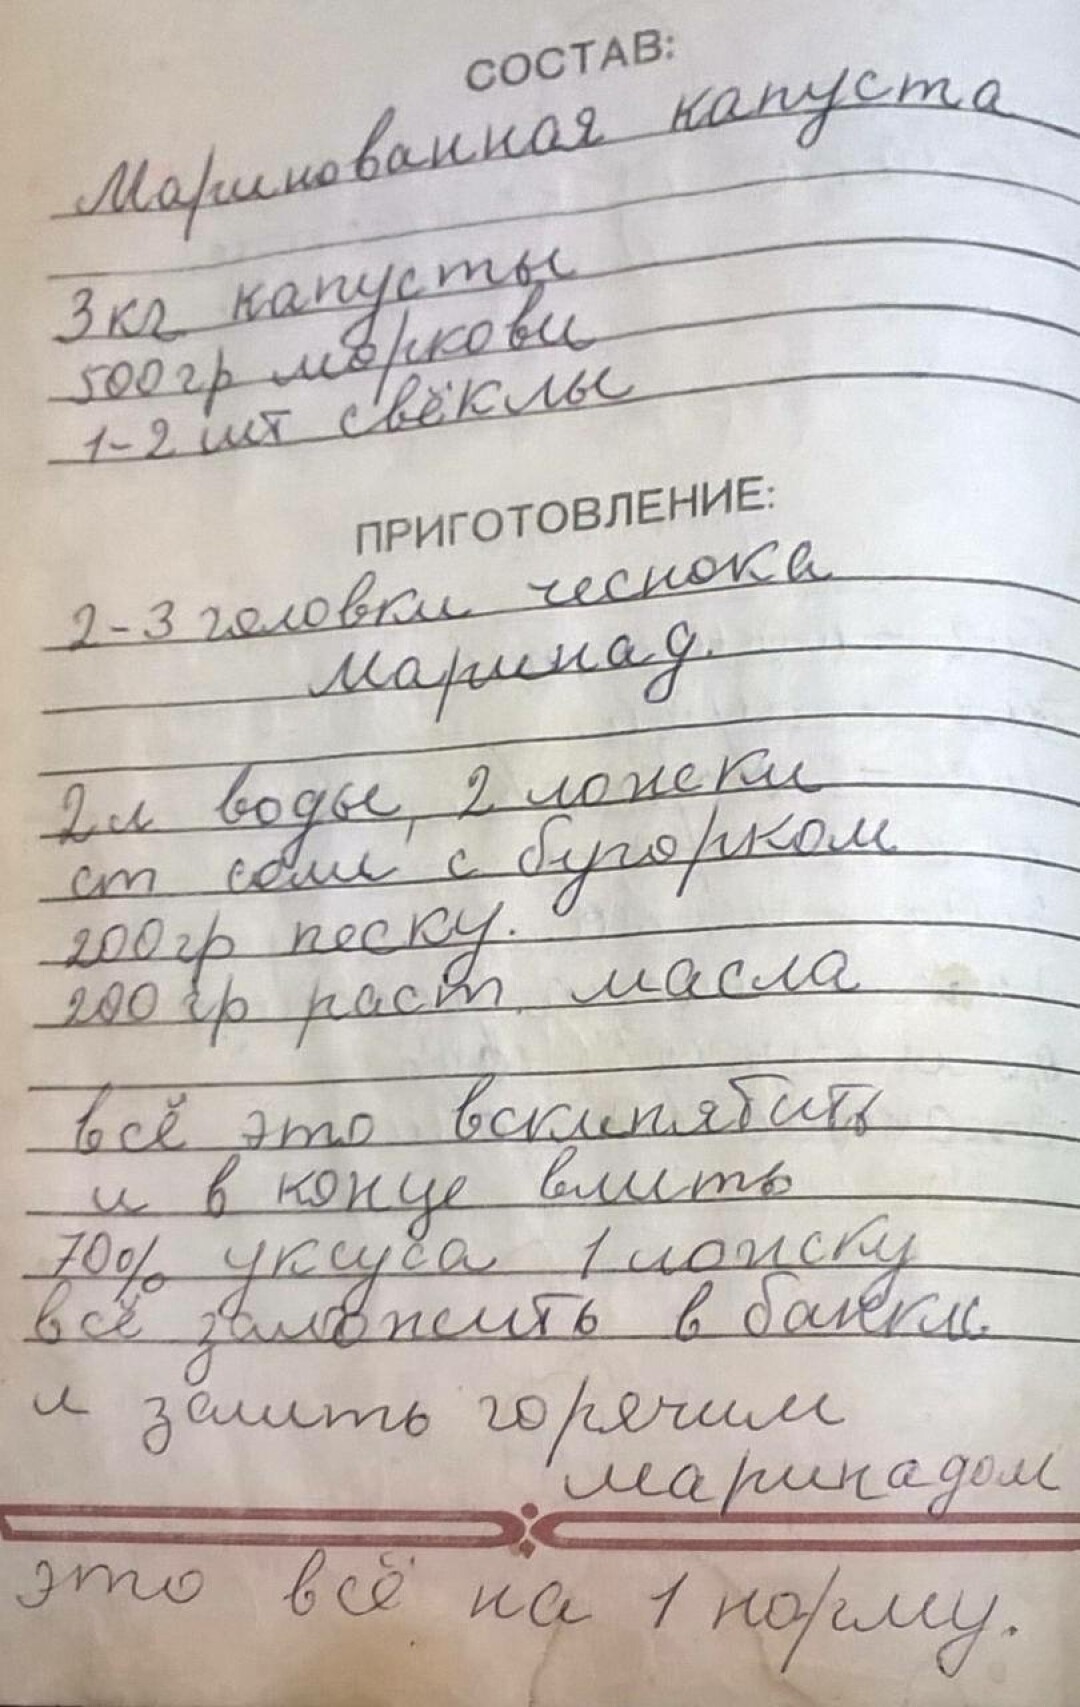 СОСТАВ:
Маринованная капуста
3кг капусты
500гр моркови
1-2 шт свёклы
ПРИГОТОВЛЕНИЕ:
2-3 головки чеснока
Маринад.
2л воды, 2 ложки
ст соли с бугорком
200гр песку.
200 гр раст. масла
всё это вскипятить
и в конце влить
70% уксуса 1 ложку
всё заложить в банки
и залить горячим
маринадом
это всё на 1 норму.